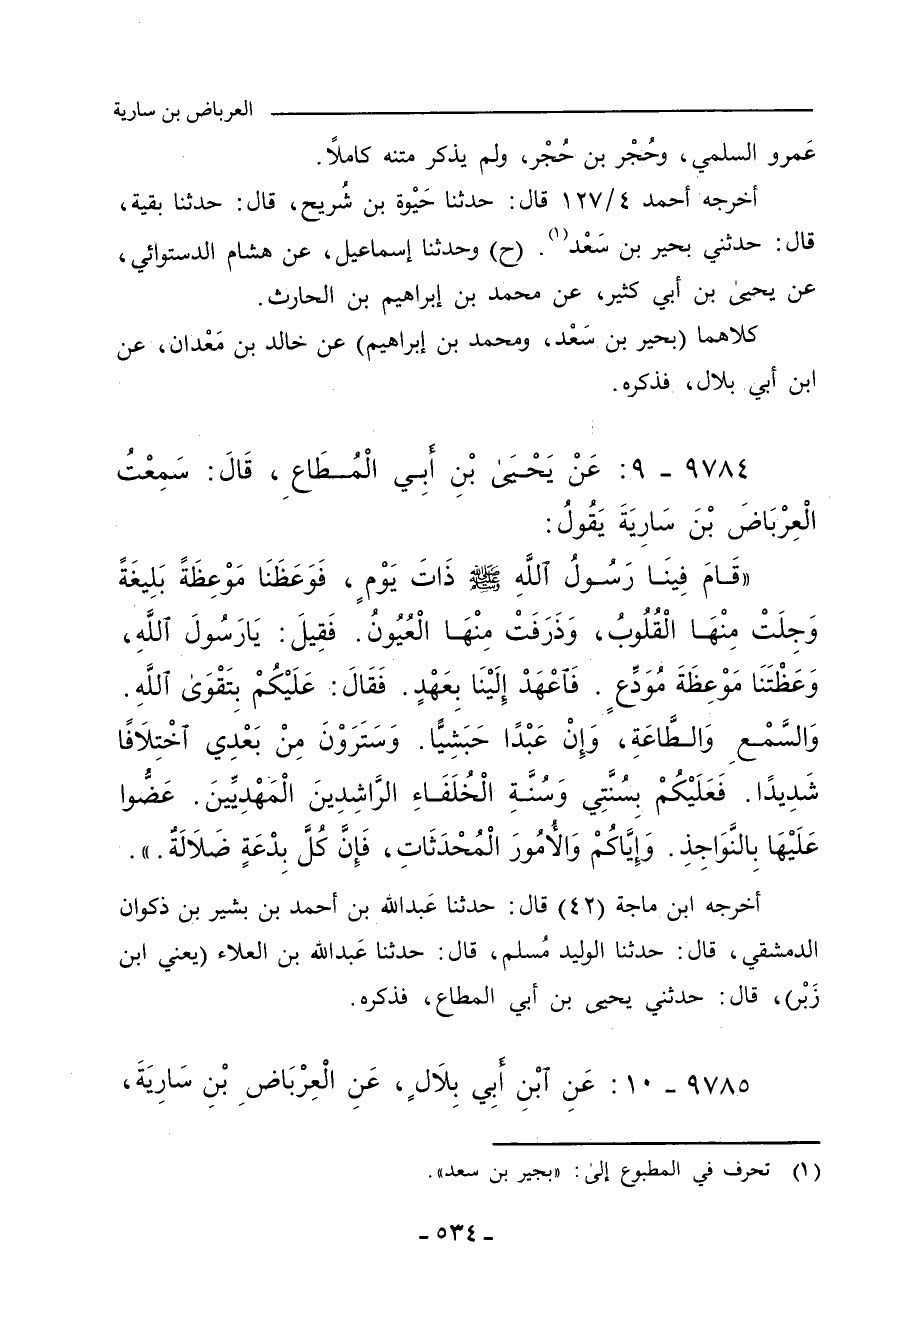 العرباض بن سارية
عَمرو السلمي، وحُجْر بن حُجْر، ولم يذكر متنه كاملاً.
أخرجه أحمد ١٢٧/٤ قال: حدثنا حَيْوة بن شُريح، قال: حدثنا بقية،
قال: حدثني بحير بن سَعْد(١). (ح) وحدثنا إسماعيل، عن هشام الدستوائي،
عن يحيىٰ بن أبي كثير، عن محمد بن إبراهيم بن الحارث.
كلاهما (بحير بن سَعْد، ومحمد بن إبراهيم) عن خالد بن مَعْدان، عن
ابن أبي بلال، فذكره.
٩٧٨٤ - ٩: عَنْ يَحْيَىٰ بْنِ أَبِي الْمُطَاعِ، قَالَ: سَمِعْتُ
الْعِرْبَاضَ بْنَ سَارِيَةَ يَقُولُ:
«قَامَ فِينَا رَسُولُ ٱللَّهِ ﷺ ذَاتَ يَوْمٍ، فَوَعَظَنَا مَوْعِظَةً بَلِيغَةً
وَجِلَتْ مِنْهَا الْقُلُوبُ، وَذَرَفَتْ مِنْهَا الْعُيُونُ. فَقِيلَ: يَارَسُولَ ٱللَّهِ،
وَعَظْتَنَا مَوْعِظَةَ مُوَدِّعٍ. فَٱعْهَدْ إِلَيْنَا بِعَهْدٍ. فَقَالَ: عَلَيْكُمْ بِتَقْوَىٰ ٱللَّهِ.
وَالسَّمْعِ وَالطَّاعَةِ، وَإِنْ عَبْدًا حَبَشِيًّا. وَسَتَرَوْنَ مِنْ بَعْدِي ٱخْتِلَافًا
شَدِيدًا. فَعَلَيْكُمْ بِسُنَّتِي وَسُنَّةِ الْخُلَفَاءِ الرَّاشِدِينَ الْمَهْدِيِّينَ. عَضُّوا
عَلَيْهَا بِالنَّوَاجِذِ. وَإِيَّاكُمْ وَالأُمُورَ الْمُحْدَثَاتِ، فَإِنَّ كُلَّ بِدْعَةٍ ضَلَالَةٌ.».
أخرجه ابن ماجة (٤٢) قال: حدثنا عَبدالله بن أحمد بن بشير بن ذكوان
الدمشقي، قال: حدثنا الوليد مُسلم، قال: حدثنا عَبدالله بن العلاء (يعني ابن
زَبْر)، قال: حدثني يحيى بن أبي المطاع، فذكره.
٩٧٨٥ - ١٠: عَنِ ٱبْنِ أَبِي بِلَالٍ، عَنِ الْعِرْبَاضِ بْنِ سَارِيَةَ،
(١) تحرف في المطبوع إلىٰ: «بجير بن سعد».
- ٥٣٤ -